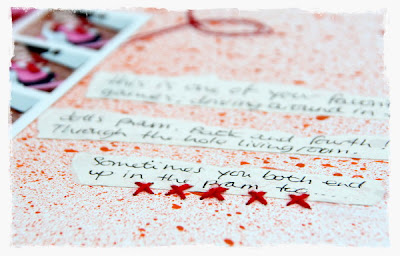 this is one of your favourite
games, driving around in
dolls pram. Back and fourth!
Through the hole livingroom.
Sometimes you both end
up in the pram too...